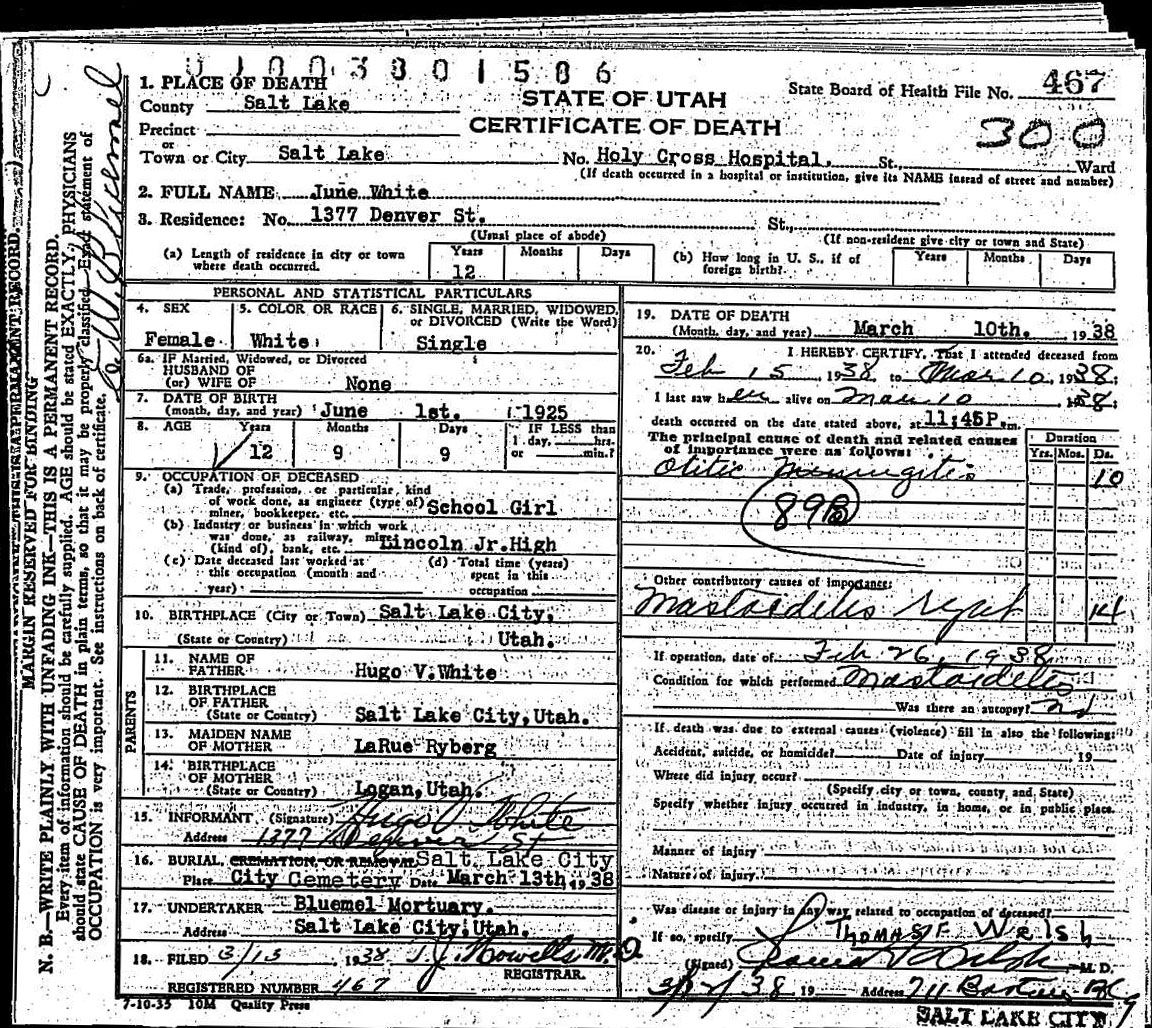 01003801586
1. PLACE OF DEATH
County Salt Lake
STATE OF UTAH
State Board of Health File No. 467
Precinct
CERTIFICATE OF DEATH
300
or
Town or City Salt Lake No. Holy Cross Hospital. St. Ward
(If death occurred in a hospital or institution, give its NAME instead of street and number)
2. FULL NAME June White
3. Residence: No. 1377 Denver St. St.,
(Usual place of abode) (If non-resident give city or town and State)
(a) Length of residence in city or town where death occurred. Years 12 Months Days
(b) How long in U. S., if of foreign birth? Years Months Days
PERSONAL AND STATISTICAL PARTICULARS
4. SEX Female
5. COLOR OR RACE White
6. SINGLE, MARRIED, WIDOWED, or DIVORCED (Write the Word) Single
6a. IF Married, Widowed, or Divorced
HUSBAND OF
(or) WIFE OF None
7. DATE OF BIRTH
(month, day, and year) June 1st. 1925
8. AGE Years 12 Months 9 Days 9 IF LESS than 1 day, hrs. or min.?
9. OCCUPATION OF DECEASED
(a) Trade, profession, or particular, kind
of work done, as engineer (type of)
miner, bookkeeper, etc. School Girl
(b) Industry or business in which work
was done, as railway, mine
(kind of), bank, etc. Lincoln Jr.High
(c) Date deceased last worked at
this occupation (month and
year)
(d) Total time (years)
spent in this
occupation
10. BIRTHPLACE (City or Town) Salt Lake City,
(State or Country) Utah.
PARENTS
11. NAME OF
FATHER Hugo V.White
12. BIRTHPLACE
OF FATHER
(State or Country) Salt Lake City,Utah.
13. MAIDEN NAME
OF MOTHER LaRue Ryberg
14. BIRTHPLACE
OF MOTHER
(State or Country) Logan,Utah.
15. INFORMANT (Signature) Hugo V White
Address 1377 Denver St
16. BURIAL, CREMATION, OR REMOVAL Salt Lake City
Place City Cemetery Date March 13th, 1938
17. UNDERTAKER Bluemel Mortuary.
Address Salt Lake City,Utah.
18. FILED 3/13 1938 T. J. Howells M.D.
REGISTRAR.
REGISTERED NUMBER 467
7-10-35 10M Quality Press
19. DATE OF DEATH
(Month, day, and year) March 10th. 1938
20. I HEREBY CERTIFY, That I attended deceased from
Feb 15, 1938 to Mar 10, 1938;
I last saw her alive on Mar 10 1938;
death occurred on the date stated above, at 11:45P.m.
The principal cause of death and related causes
of importance were as follows: Duration Yrs. Mos. Ds.
Otitic Meningitis 10
89B
Other contributory causes of importance:
Mastoiditis Right 14
If operation, date of Feb 26, 1938
Condition for which performed Mastoiditis
Was there an autopsy? no
If death was due to external causes (violence) fill in also the following:
Accident, suicide, or homicide? Date of injury 19
Where did injury occur?
(Specify city or town, county, and State)
Specify whether injury occurred in industry, in home, or in public place.
Manner of injury
Nature of injury
Was disease or injury in any way related to occupation of deceased?
If so, specify
THOMAS F WELSH
(Signed) M. D.
38 19 Address 711 Boston Bldg
SALT LAKE CITY
MARGIN RESERVED FOR BINDING
N. B.—WRITE PLAINLY WITH UNFADING INK—THIS IS A PERMANENT RECORD.
Every item of information should be carefully supplied. AGE should be stated EXACTLY. PHYSICIANS
should state CAUSE OF DEATH in plain terms, so that it may be properly classified. Exact statement of
OCCUPATION is very important. See instructions on back of certificate.